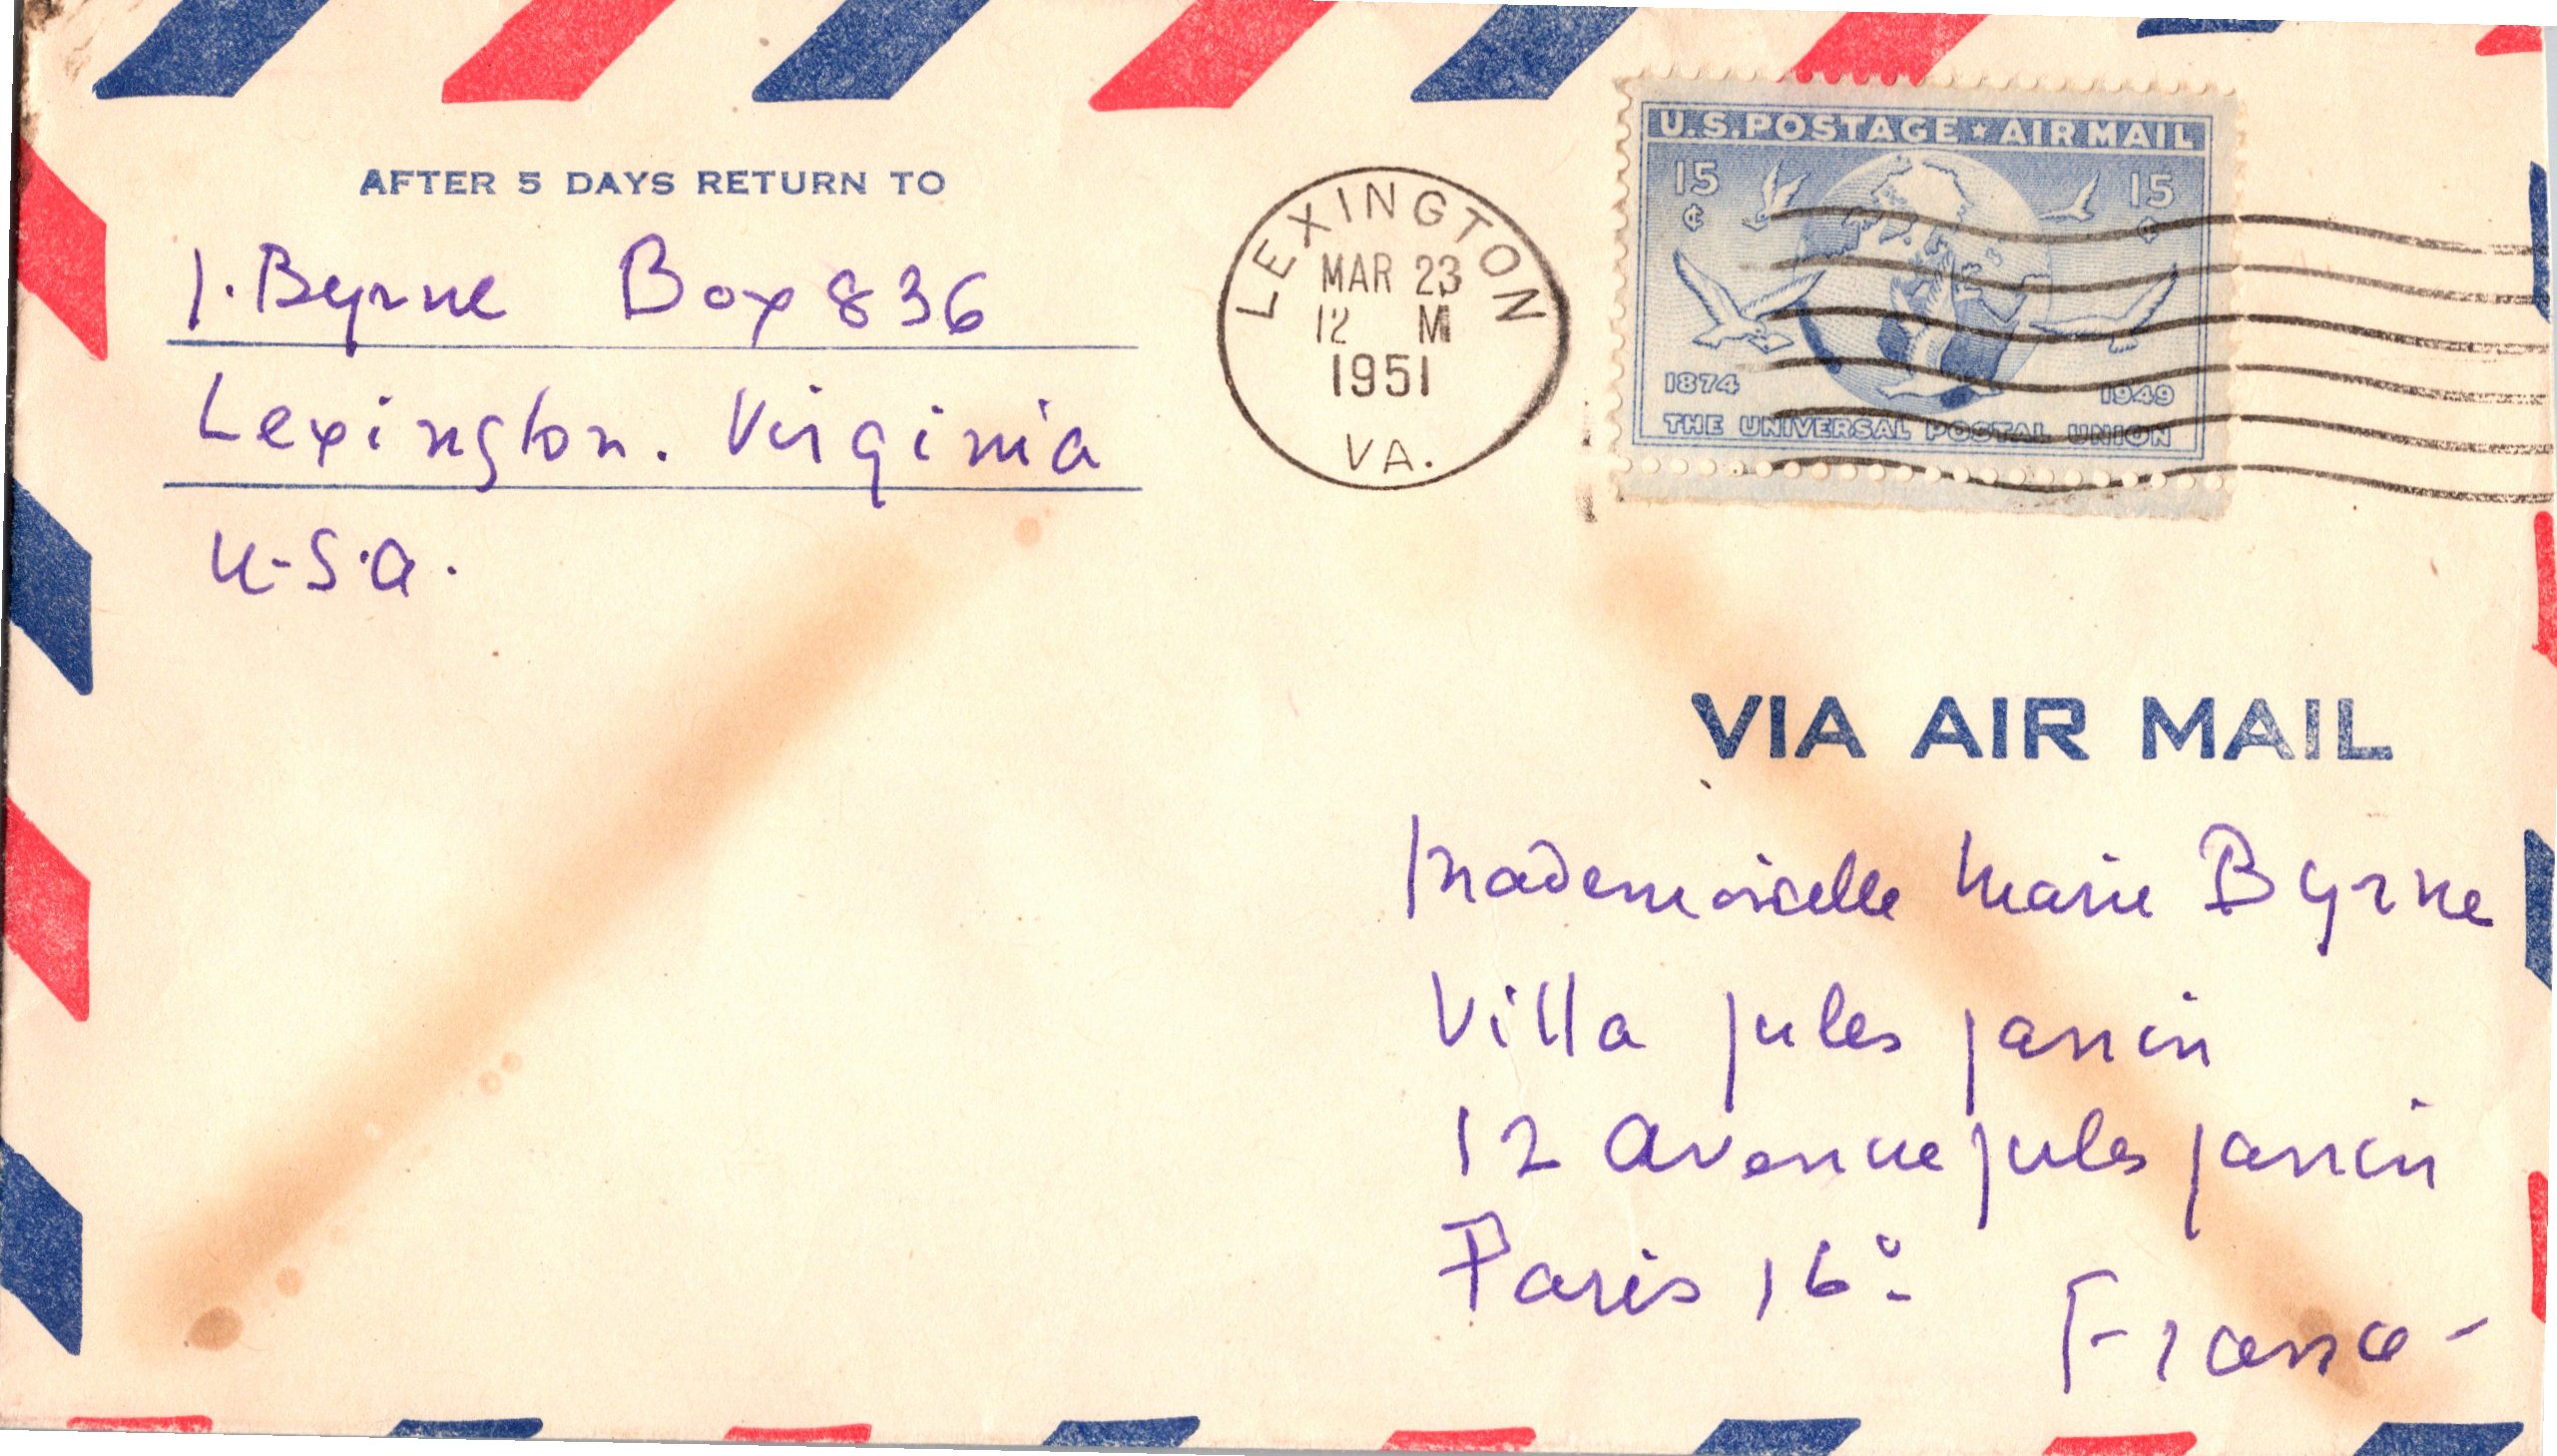 AFTER 5 DAYS RETURN TO
J. Byrne Box 836
Lexington. Virginia
U.S.A.
LEXINGTON
MAR 23
12 M
1951
VA.
U.S. POSTAGE ★ AIR MAIL
15¢ 15¢
1874 1949
THE UNIVERSAL POSTAL UNION
VIA AIR MAIL
Mademoiselle Marie Byrne
Villa Jules Janin
12 Avenue Jules Janin
Paris 16e
France